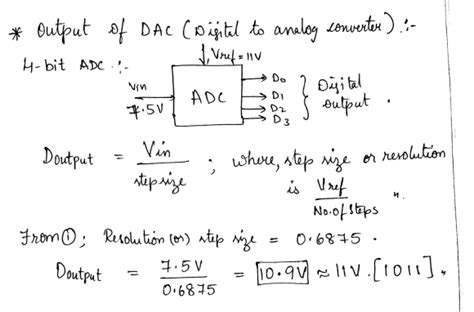 * Output of DAC (Digital to analog converter) :-
4-bit ADC :-
Vref = 11V
Vin
7.5V
ADC
D0
D1
D2
D3
Digital output .
Doutput = Vin / step size ; where, step size or resolution
is Vref / No. of steps ".
From ①; Resolution (or) step size = 0.6875 .
Doutput = 7.5V / 0.6875 = 10.9V ≈ 11V . [1011] .